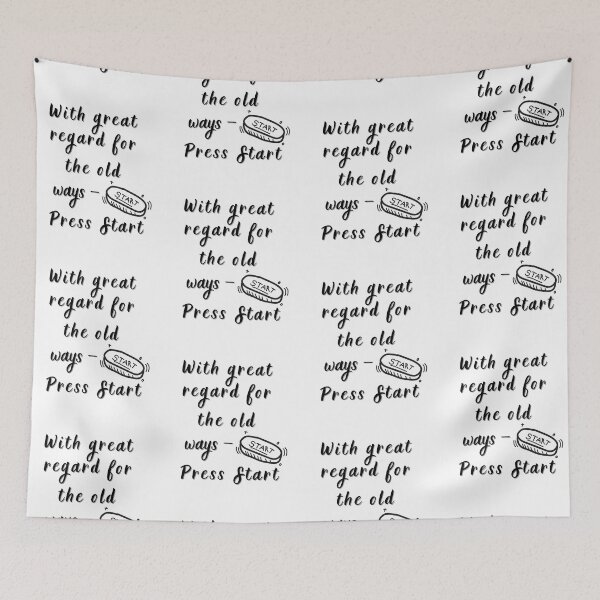 With great
regard for
the old
ways – START
Press Start
With great
regard for
the old
ways – START
Press Start
With great
regard for
the old
the old
ways – START
Press Start
With great
regard for
the old
ways – START
Press Start
With great
regard for
the old
ways – START
Press Start
With great
regard for
the old
ways – START
Press Start
With great
regard for
the old
ways – START
Press Start
With great
regard for
the old
the old
ways – START
Press Start
With great
regard for
the old
ways – START
Press Start
With great
regard for
the old
ways – START
Press Start